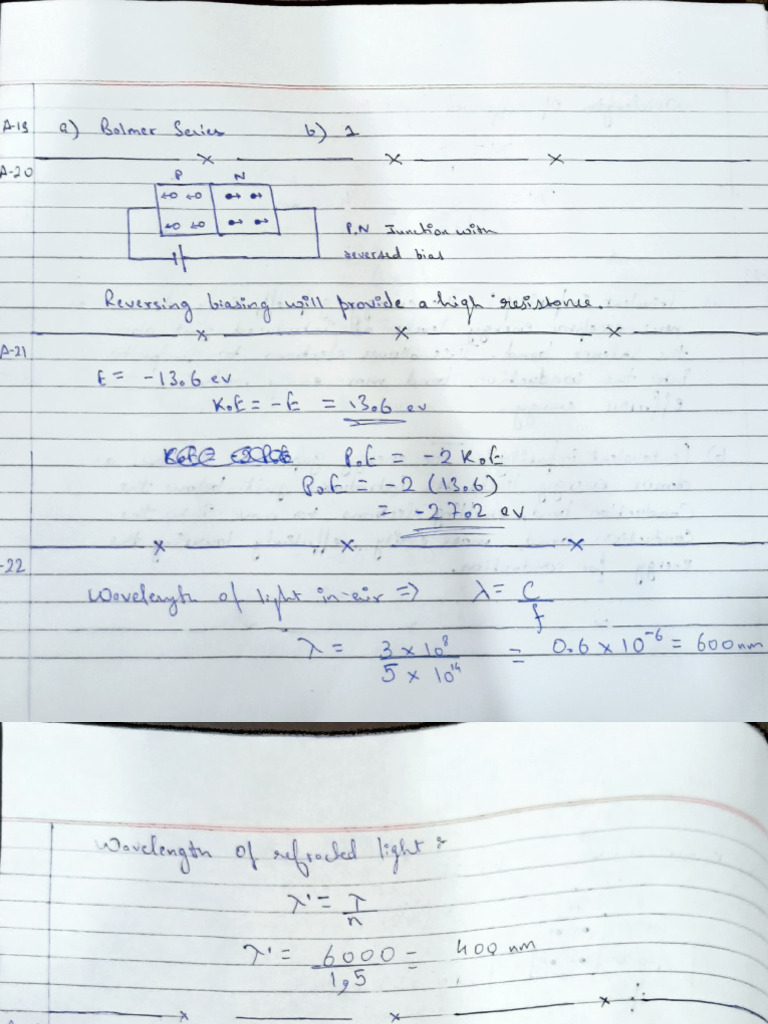 A-19 a) Bolmer Series b) 1
A-20
P N
P.N Junction with
reversed bias
Reversing biasing will provide a high resistance.
A-21
E = -13.6 ev
K.E = -E = 13.6 ev
P.E = -2 K.E
P.E = -2 (13.6)
= -27.2 ev
-22
Wavelength of light in air => λ = C/f
λ = 3 × 10⁸ / 5 × 10¹⁴ = 0.6 × 10⁻⁶ = 600 nm
Wavelength of refracted light :
λ' = λ/n
λ' = 6000/1,5 = 400 nm